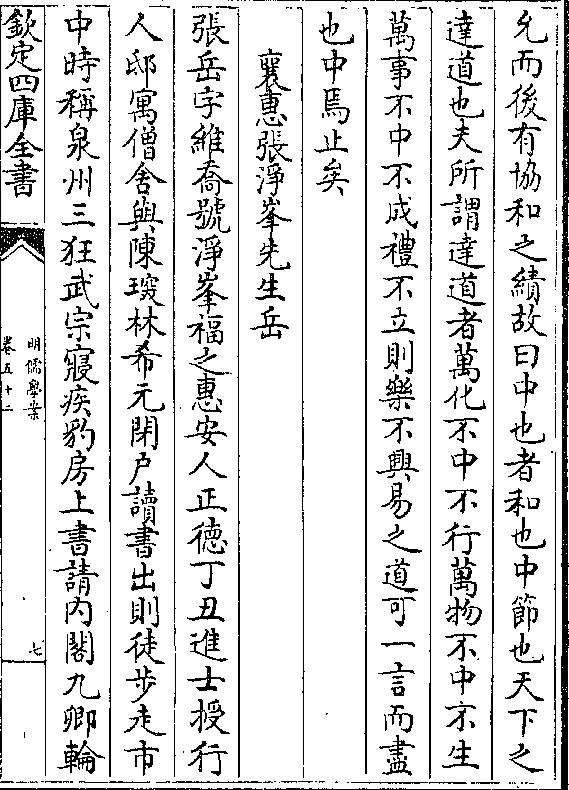 允而後有協和之績故曰中也者和也中節也天下之
達道也夫所謂達道者萬化不中不行萬物不中不生
萬事不中不成禮不立則樂不興易之道可一言而盡
也中焉止矣
襄惠張淨峯先生岳
張岳字維喬號淨峯福之惠安人正德丁丑進士授行
人邸寓僧舍與陳琛林希元閉戸讀書出則徒步走市
中時稱泉州三狂武宗寢疾豹房上書請内閣九卿輪
欽定四庫全書
明儒學案
卷五十二
七